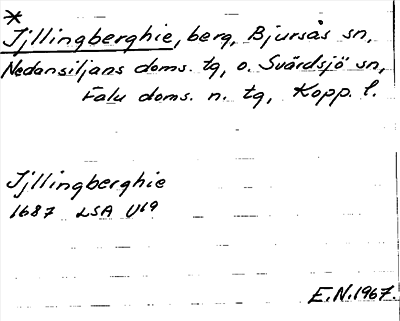 *
Ijllingberghie, berg, Bjursås sn,
Nedansiljans doms. tg, o. Svärdsjö sn,
Falu doms. n. tg, Kopp. l.
Ijllingberghie
1687 LSA U19
E.N.1967.